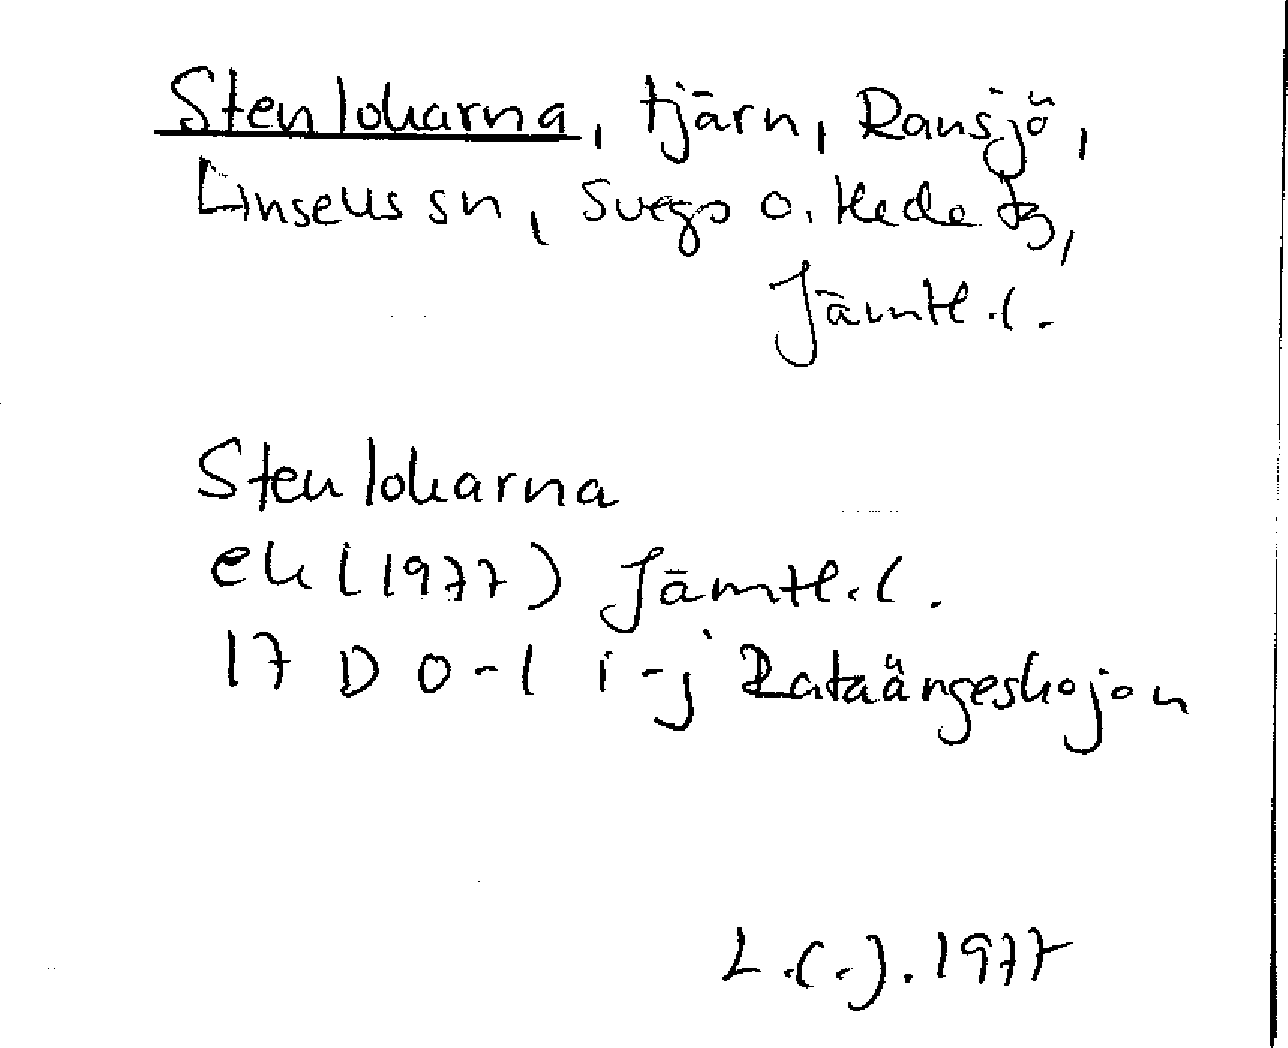 Stenlokarna, tjärn, Ransjö,
Linsells sn, Svegs o. Hede tg,
Jämtl. l.
Stenlokarna
ek (1977) Jämtl. l.
17 D 0-1 i-j Rataängeskojan
L.(-). 1977